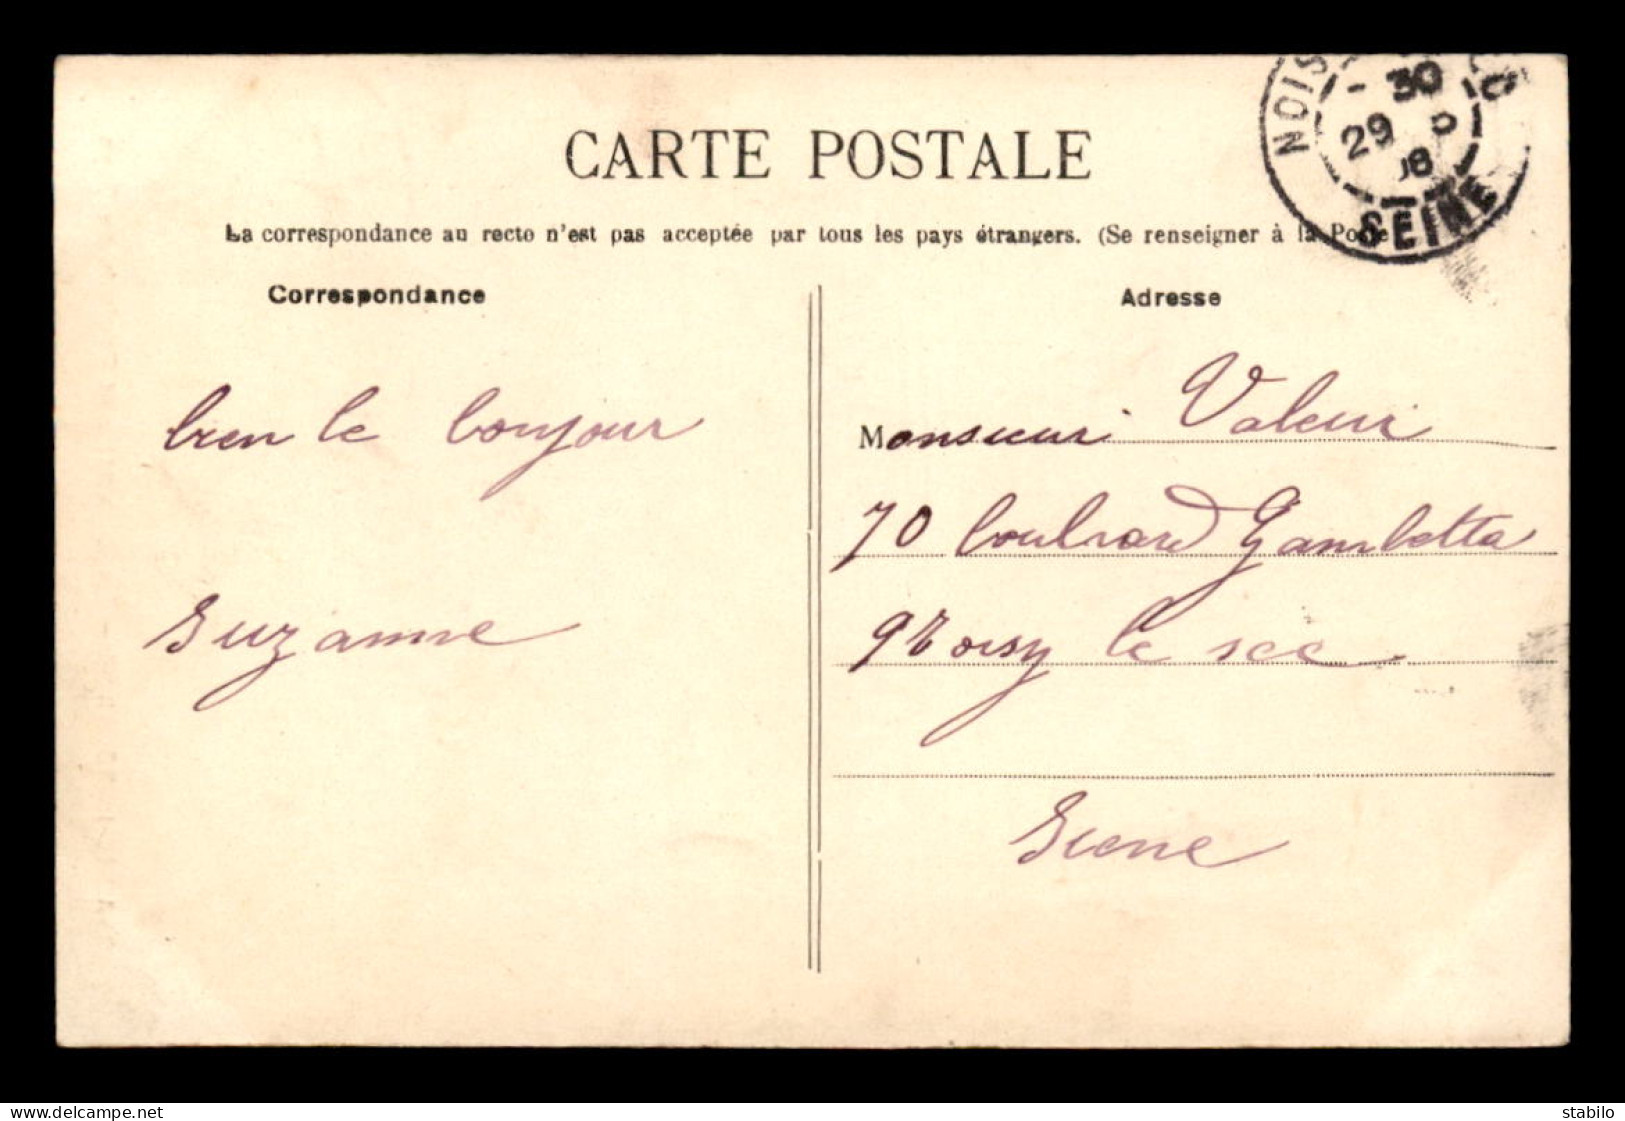 CARTE POSTALE
La correspondance au recto n'est pas acceptée par tous les pays étrangers. (Se renseigner à la Poste
Correspondance
bien le bonjour
Suzanne
Adresse
Monsieur Valeur
70 boulvard Gambetta
Noisy le sec
Siene
NOIS
- 30
29 5
08
SEINE
www.delcampe.net
stabilo